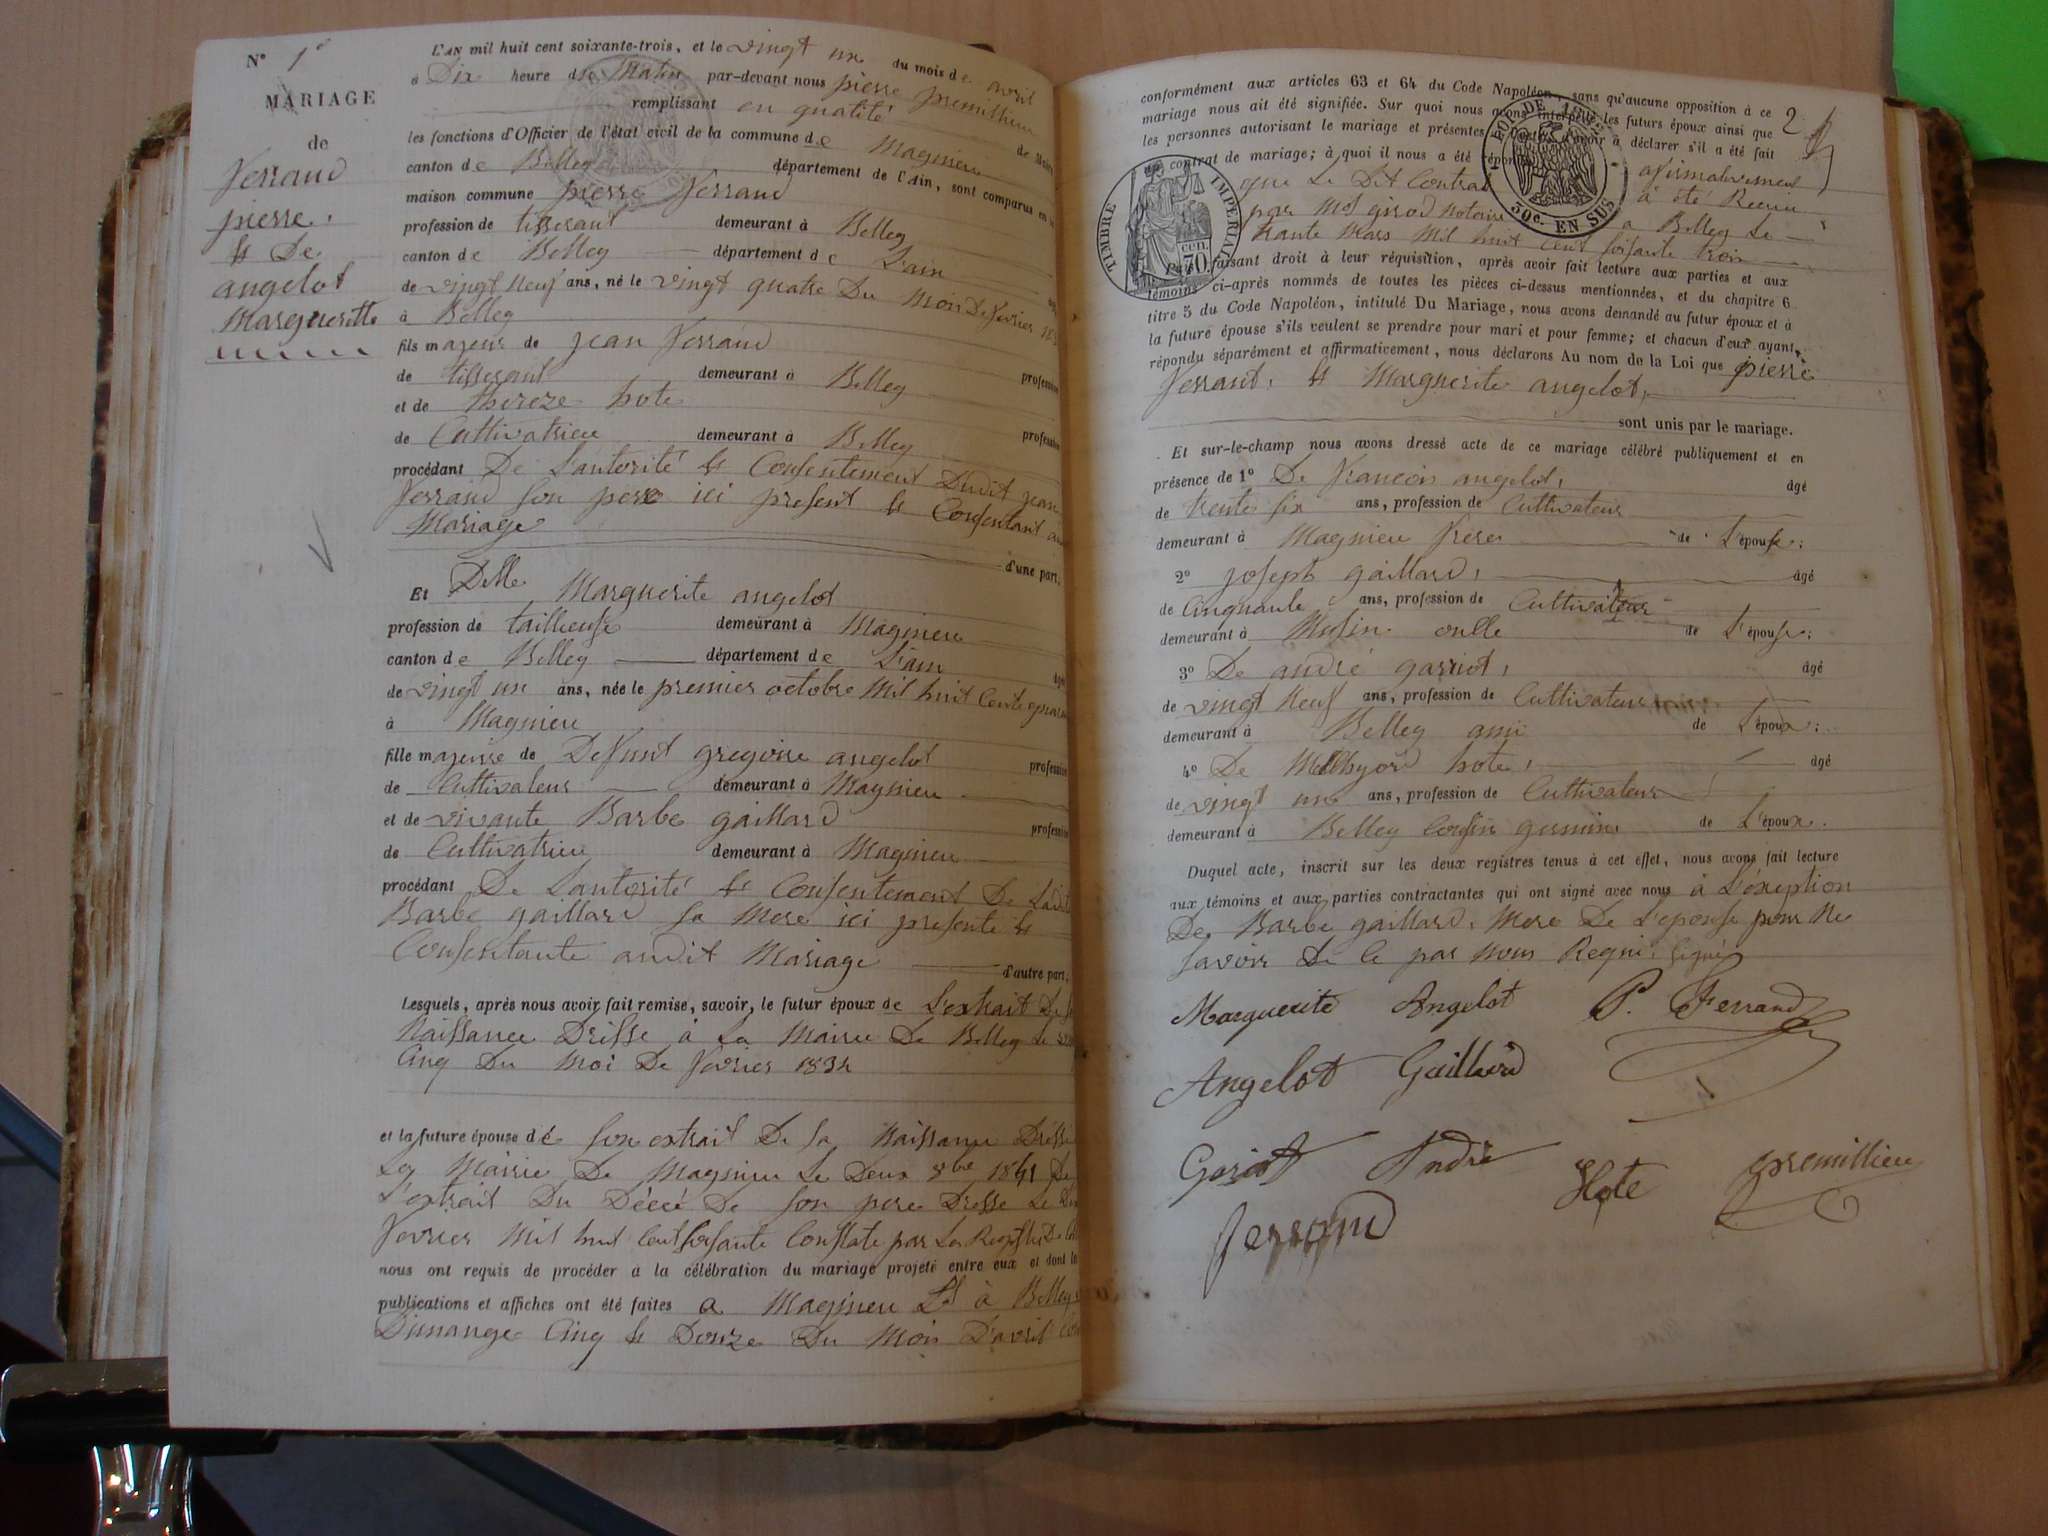 N° 1e
MARIAGE
de
ferrand
pierre,
et De
angelot
Margueritte
L'AN mil huit cent soixante-trois, et le vingt un du mois de avril
à Dix heure du Matin par-devant nous pierre premillieu
remplissant en qualité de Maire
les fonctions d'Officier de l'état civil de la commune de Magnieu
canton de Belley département de l'Ain, sont comparus en la
maison commune pierre ferrand
profession de tisserant demeurant à Belley
canton de Belley département de L'ain
de vingt Neuf ans, né le vingt quatre Du Mois De fevrier
à Belley
fils majeur de jean ferrand profession
de tisserant demeurant à Belley
et de thereze hote profession
de Cultivatrice demeurant à Belley
procédant De L'autorité et Consentement Dudit jean
ferrand Son pere ici present et Consentant au
Mariage
d'une part,
Et Delle Marguerite angelot
profession de tailleuse demeurant à Magnieu
canton de Belley département de L'ain âgée
de vingt un ans, née le premier octobre Mil huit Cent
à Magnieu
fille majeure de Defunt gregoire angelot profession
de Cultivateur demeurant à Magnieu
et de vivante Barbe gaillard profession
de Cultivatrice demeurant à Magnieu
procédant De L'autorité et Consentement De Ladite
Barbe gaillard Sa Mere ici presente et
Consentante audit Mariage d'autre part;
Lesquels, après nous avoir fait remise, savoir, le futur époux de L'extrait De Sa
Naissance Drésse à La Mairie De Belley Le
Cinq Du Moi De fevrier 1834
et la future épouse de Son extrait De Sa Naissance Dressé
La Mairie De Magnieu Le Deux 8bre 1841 De
L'extrait Du Décé De Son pere Dresse Le
fevrier Mil huit Cent Soisante Constate par Les Registre De
nous ont requis de procéder à la célébration du mariage projeté entre eux et dont les
publications et affiches ont été faites a Magnieu Et à Belley
Dimange Cinq et Douze Du Mois D'avril
2
conformément aux articles 63 et 64 du Code Napoléon, sans qu'aucune opposition à ce
mariage nous ait été signifiée. Sur quoi nous avons interpellé les futurs époux ainsi que
les personnes autorisant le mariage et présentes d'avoir à déclarer s'il a été fait
un contrat de mariage; à quoi il nous a été répondu afirmativement
que Le Dit Contrat à été Recu
par Me girod Notaire a Belley Le
trante Mars Mil huit Cent Soisante trois
TIMBRE IMPERIAL
70 cen.
30c. EN SUS
faisant droit à leur réquisition, après avoir fait lecture aux parties et aux
témoins ci-après nommés de toutes les pièces ci-dessus mentionnées, et du chapitre 6
titre 5 du Code Napoléon, intitulé Du Mariage, nous avons demandé au futur époux et à
la future épouse s'ils veulent se prendre pour mari et pour femme; et chacun d'eux ayant
répondu séparément et affirmativement, nous déclarons Au nom de la Loi que pierre
ferrant, et Marguerite angelot,
sont unis par le mariage.
Et sur-le-champ nous avons dressé acte de ce mariage célébré publiquement et en
présence de 1° De francois angelot, âgé
de trente Six ans, profession de Cultivateur
demeurant à Magnieu frere de L'épouse;
2° joseph gaillard, âgé
de Cinquante ans, profession de Cultivateur
demeurant à Musin de L'épouse;
3° De andré garriot, âgé
de vingt Neuf ans, profession de Cultivateur
demeurant à Belley ami de L'époux;
4° De Melchyord hote, âgé
de vingt un ans, profession de Cultivateur
demeurant à Belley Cousin germin de L'époux.
Duquel acte, inscrit sur les deux registres tenus à cet effet, nous avons fait lecture
aux témoins et aux parties contractantes qui ont signé avec nous à L'éxeption
De Barbe gaillard, Mere De L'epouse pour Ne
Savoir De Ce par Nous Requi, Signé
Marguerite Angelot P. Ferrand
Angelot Gaillard
Goriot André Hote premillieu
ferrand